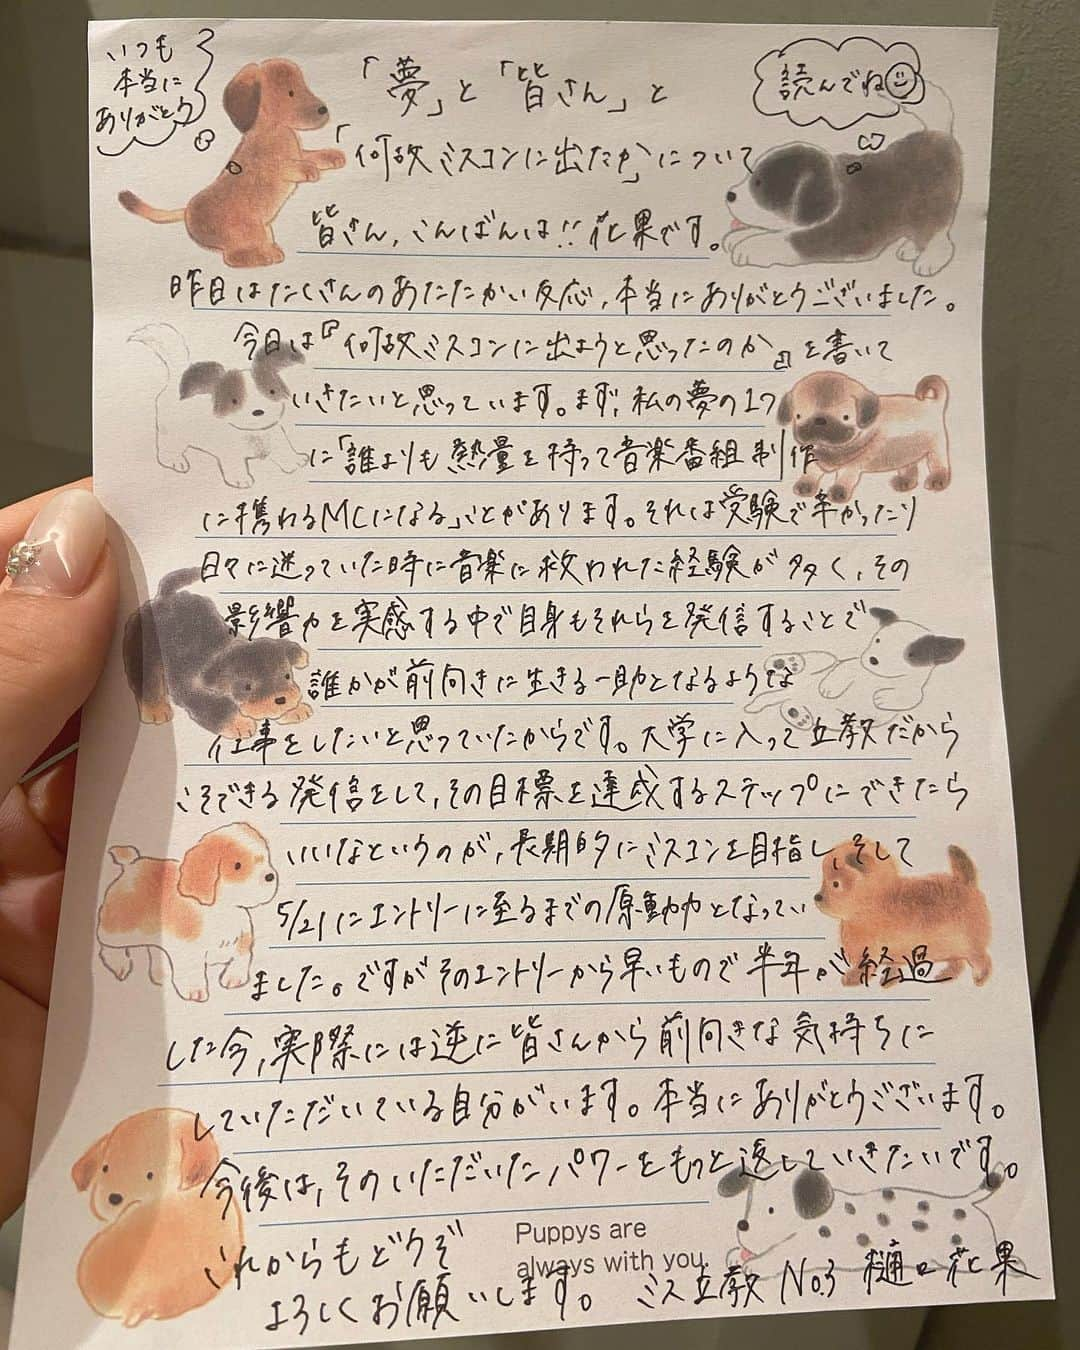 いつも
本当に
ありがとう
読んでね
「夢」と「皆さん」と
「何故ミスコンに出たか」について
皆さん、こんばんは!! 花果です。
昨日はたくさんのあたたかい反応、本当にありがとうございました。
今日は『何故ミスコンに出ようと思ったのか』を書いて
いきたいと思っています。まず、私の夢の1つ
に「誰よりも熱量を持って音楽番組制作
に携わるMCになる」ことがあります。それは受験で辛かったり
日々に迷っていた時に音楽に救われた経験が多く、その
影響力を実感する中で自身もそれらを発信することで
誰かが前向きに生きる一助となるような
仕事をしたいと思っていたからです。大学に入って立教だから
こそできる発信をして、その目標を達成するステップにできたら
いいなというのが、長期的にミスコンを目指し、そして
5/21にエントリーに至るまでの原動力となってい
ました。ですがそのエントリーから早いもので半年が経過
した今、実際には逆に皆さんから前向きな気持ちに
していただいている自分がいます。本当にありがとうございます。
今後は、そのいただいたパワーをもっと返していきたいです。
これからもどうぞ
よろしくお願いします。 ミス立教 No.3 樋口花果
Puppys are
always with you